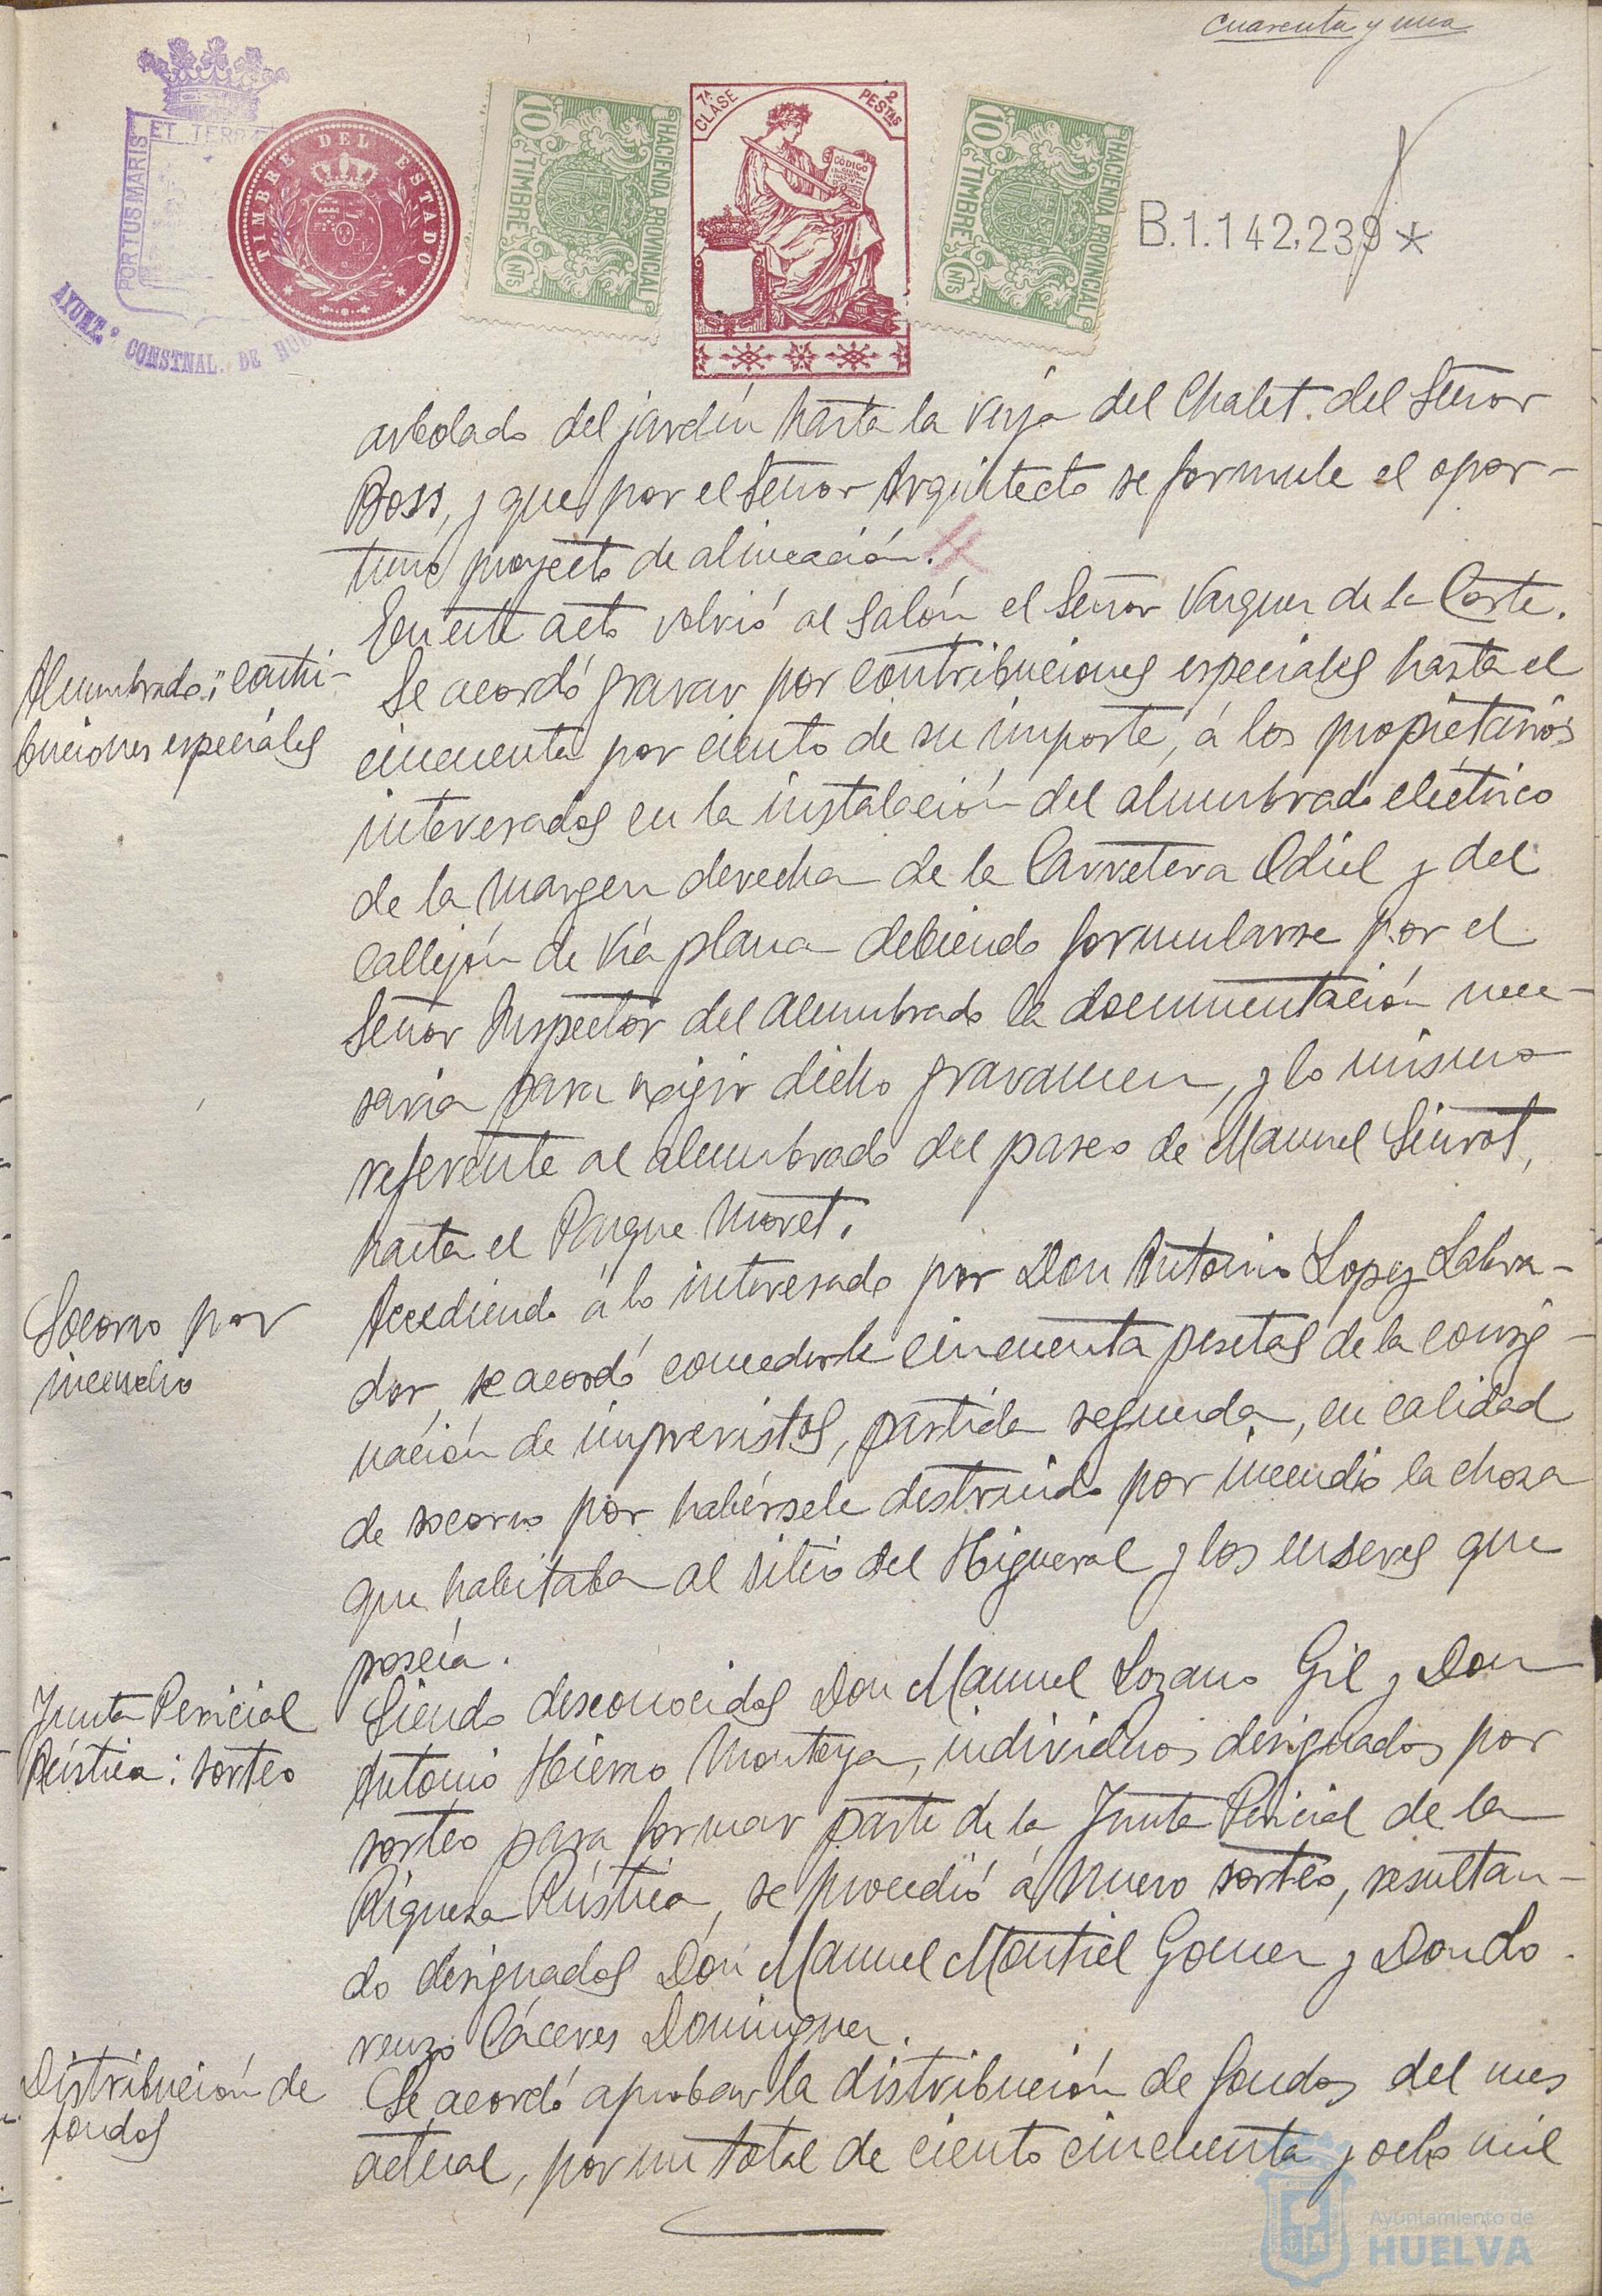 cuarenta y una
ET TERR
PORTUS MARIS
AYUNT.º CONSTNAL. DE HU
TIMBRE DEL ESTADO
10 TIMBRE CNTS
HACIENDA PROVINCIAL
7ª CLASE
2 PESTAS
CODIGO
10 TIMBRE CNTS
HACIENDA PROVINCIAL
B.1.142,239*
arbolado del jardín hasta la verja del Chalet del Señor
Boss, y que por el Señor Arquitecto se formule el opor-
tuno proyecto de alineación.
En este acto volvió al Salón el Señor Vazquez de la Corte.
Alumbrado: contri-
buciones especiales
Se acordó gravar por contribuciones especiales hasta el
cincuenta por ciento de su importe, á los propietarios
interesados en la instalación del alumbrado electrico
de la margen derecha de la Carretera Odiel y del
Callejón de Vía plana debiendo formularse por el
Señor Inspector del Alumbrado la documentación nece-
saria para exijir dicho gravamen, y lo mismo
referente al alumbrado del paseo de Manuel Siurot,
hasta el Parque Moret.
Socorro por
incendio
Accediendo á lo interesado por Don Antonio Lopez Labra-
dor, se acordó concederle cincuenta pesetas de la consig-
nación de imprevistos, partida segunda, en calidad
de socorro por habérsele destruido por incendio la choza
que habitaba al sitio del Higueral y los enseres que
poseía.
Junta Pericial
Rústica: sorteo
Siendo desconocidos Don Manuel Lozano Gil y Don
Antonio Hierro Montoya, individuos designados por
sorteo para formar parte de la Junta Pericial de la
Riqueza Rústica, se procedió á nuevo sorteo, resultan-
do designados Don Manuel Montiel Gomez y Don Lo-
renzo Cáceres Dominguez.
Distribución de
fondos
Se acordó aprobar la distribución de fondos del mes
actual, por un total de ciento cincuenta y ocho mil
Ayuntamiento de
HUELVA